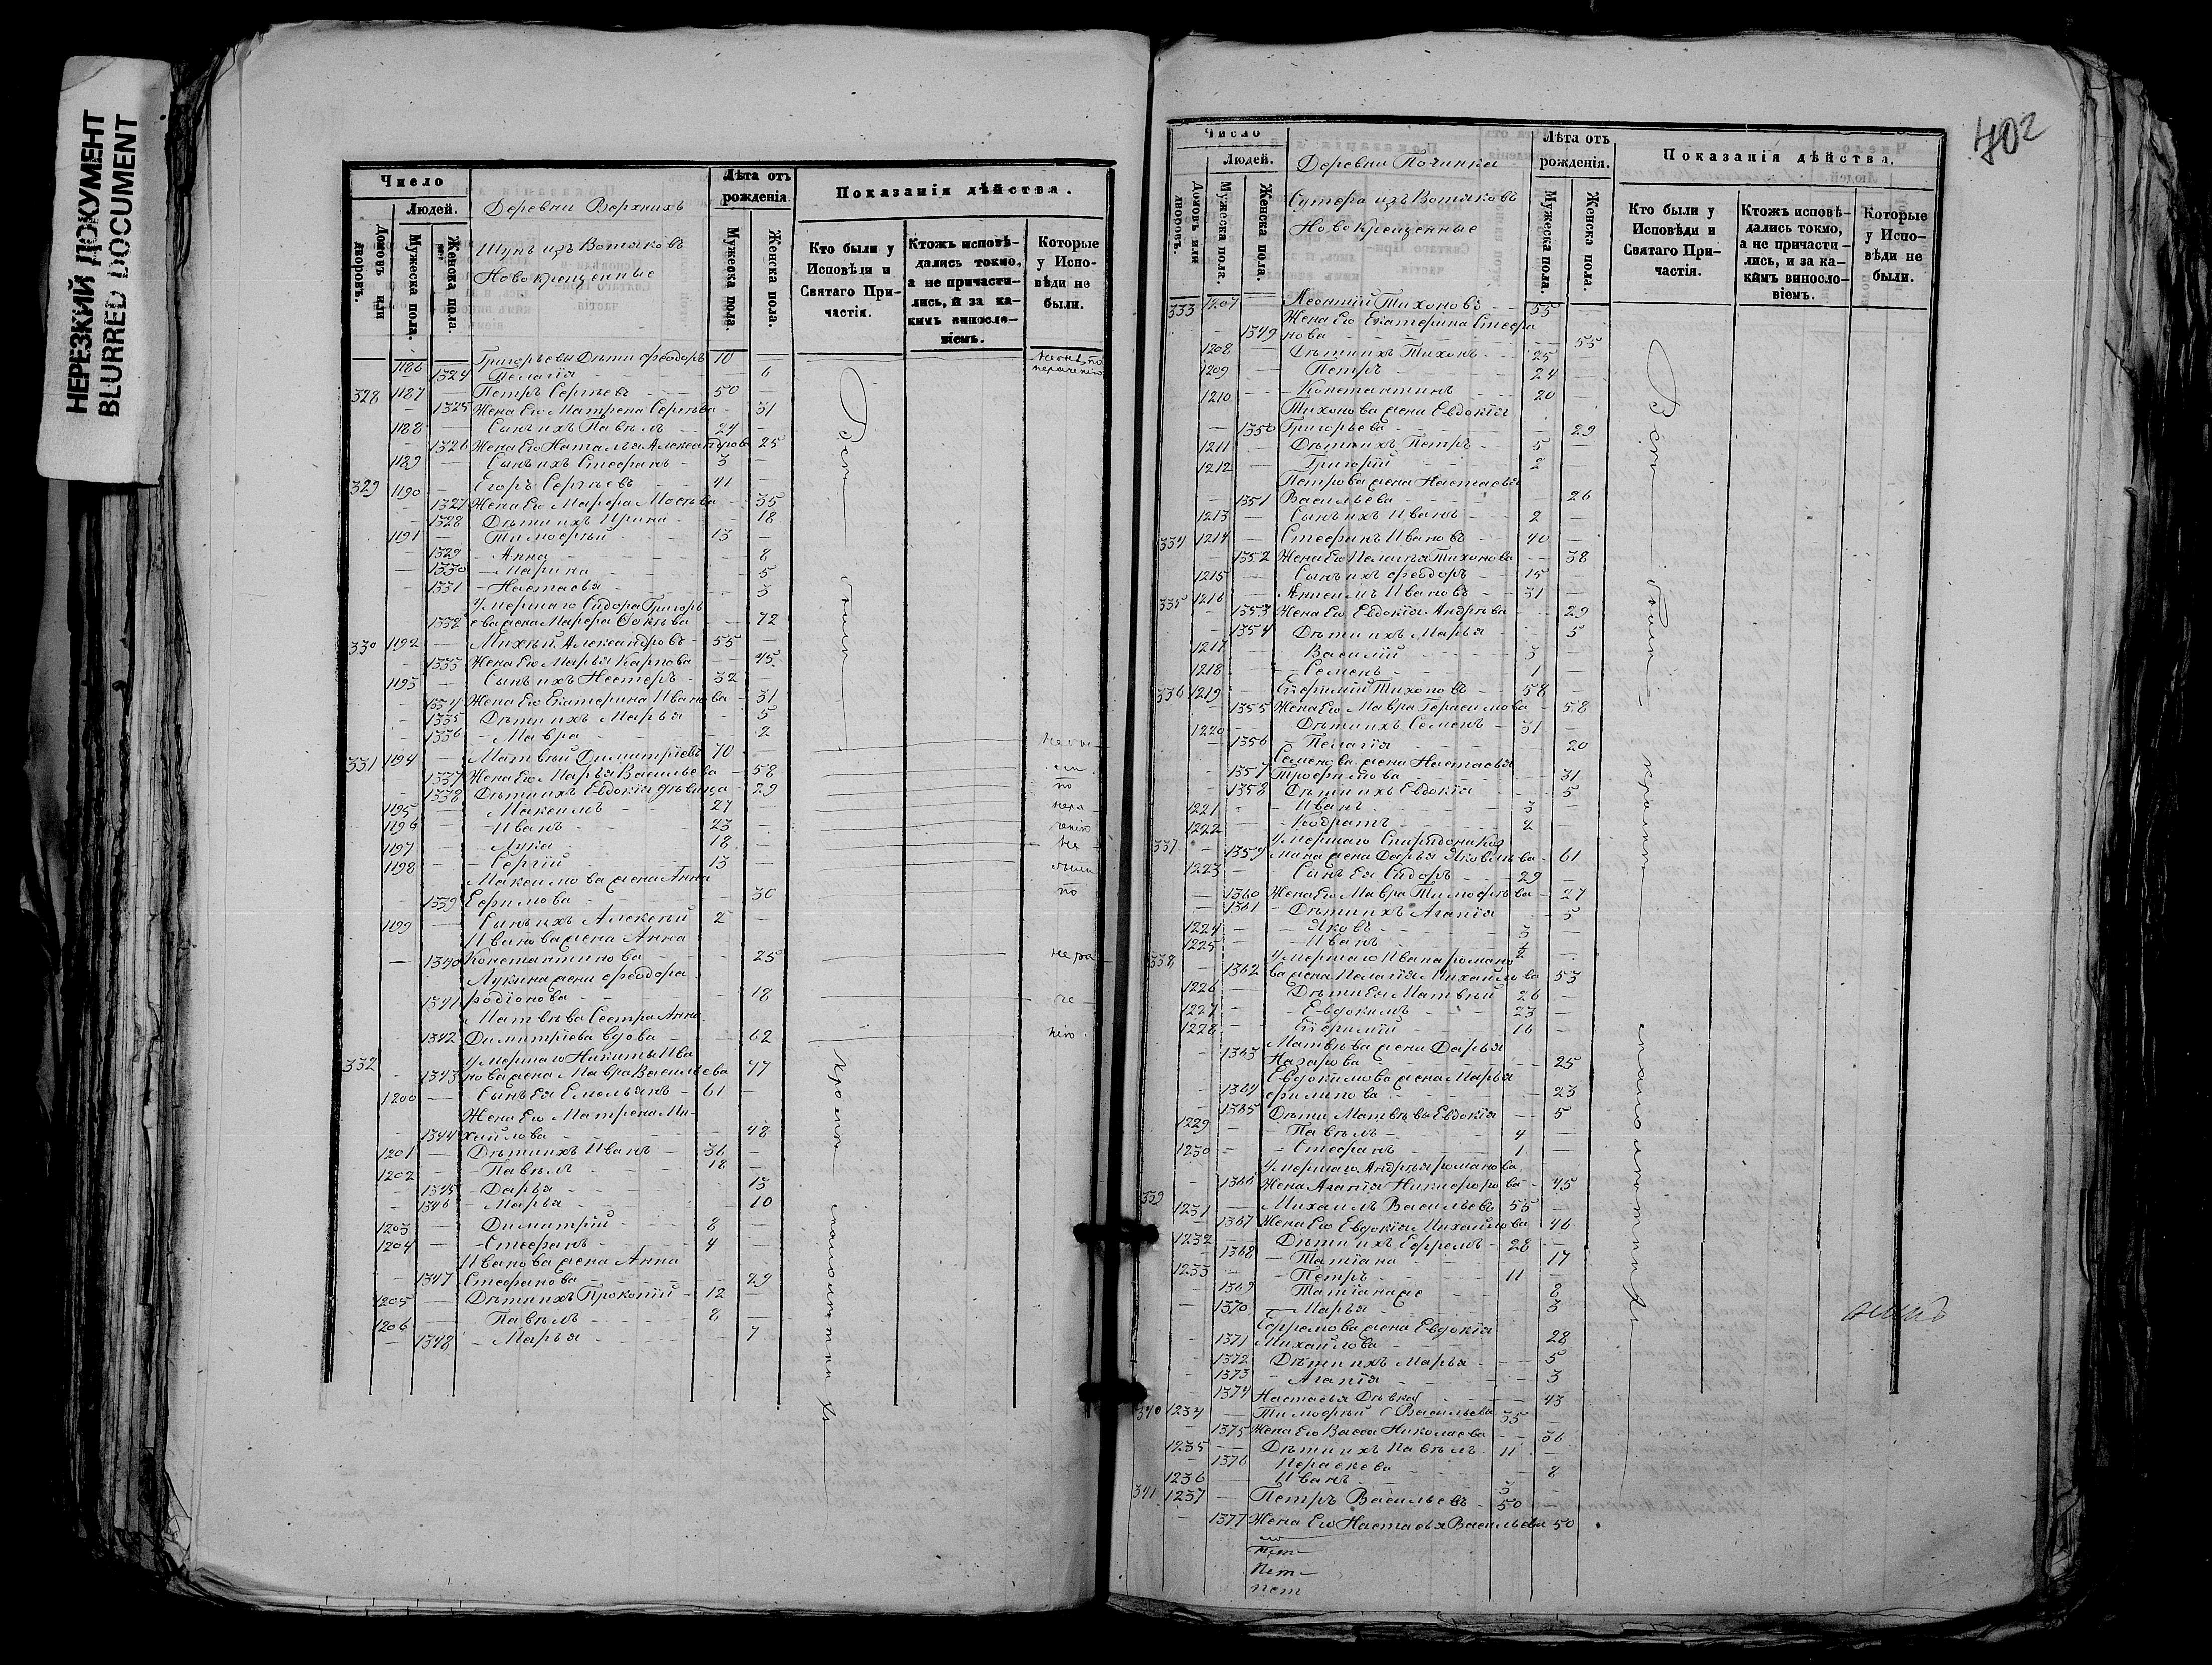 НЕРЕЗКИЙ ДОКУМЕНТ
BLURRED DOCUMENT
Число
Людей.
Домовъ или дворовъ.
Мужеска пола.
Женска пола.
Деревни Верхнихъ
Шунъ изъ Вотяковъ
Новокрещенные
Лѣта отъ рожденія.
Мужеска пола
Женска пола.
Показанія дѣйства.
Кто были у Исповѣди и Святаго Причастія.
Ктожъ исповѣдались токмо, а не причастились, и за какимъ винословіемъ.
Которые у Исповѣди не были.
1186 Григорьевы Дѣти Ѳеодоръ 10
1324 Пелагія 6
328 1187 Петръ Сергѣевъ 50
1325 Жена Его Матрена Сергѣева 31
1188 Сынъ ихъ Павелъ 24
1326 Жена Его Наталья Александрова 25
1189 Сынъ ихъ Стефанъ 3
329 1190 Егоръ Сергѣевъ 41
1327 Жена Его Марфа Мосѣева 35
1328 Дѣти ихъ Ирина 18
1191 Тимофѣй 13
1329 Анна 8
1330 Марина 5
1331 Настасья 3
Умершаго Сидора Григорь
1332 ева жена Марфа Фокѣева 72
330 1192 Михѣй Александровъ 55
1333 Жена Его Марья Карпова 45
1193 Сынъ ихъ Нестеръ 32
1334 Жена Его Екатерина Иванова 31
1335 Дѣти ихъ Марья 5
1336 Мавра 2
331 1194 Матвѣй Димитріевъ 70
1337 Жена Его Марья Васильева 58
1338 Дѣти ихъ Евдокія дѣвица 29
1195 Максимъ 27
1196 Иванъ 23
1197 Лука 18
1198 Сергій 13
Максимова жена Анна
1339 Ефимова 30
1199 Сынъ ихъ Алексѣй 2
Иванова жена Анна
1340 Константинова 25
Лукина жена Ѳеодора
1341 Родіонова 18
Матвѣева Сестра Анна
1342 Димитріева вдова 62
332 Умершаго Никиты Ива
1343 нова жена Мавра Васильева 77
1200 Сынъ Ея Емельянъ 61
Жена Его Матрена Ми-
1344 хайлова 48
1201 Дѣти ихъ Иванъ 36
1202 Павелъ 18
1345 Дарья 13
1346 Марья 10
1203 Димитрій 8
1204 Стефанъ 4
Иванова жена Анна
1347 Стефанова 29
1205 Дѣти ихъ Прокопій 12
1206 Павелъ 8
1348 Марья 7
Всѣ были кромѣ малолѣтныхъ
402
Число
Людей.
Домовъ или дворовъ.
Мужеска пола.
Женска пола.
Деревни Починка
Сутера изъ Вотяковъ
Новокрещенные
Лѣта отъ рожденія.
Мужеска пола.
Женска пола.
Показанія дѣйства.
Кто были у Исповѣди и Святаго Причастія.
Ктожъ исповѣдались токмо, а не причастились, и за какимъ винословіемъ.
Которые у Исповѣди не были.
333 1207 Леонтій Тихоновъ 55
Жена Его Екатерина Стефа
1349 нова 55
1208 Дѣти ихъ Тихонъ 25
1209 Петръ 24
1210 Константинъ 20
Тихонова жена Евдокія
1350 Григорьева 29
1211 Дѣти ихъ Петръ 5
1212 Григорій 2
Петрова жена Настасья
1351 Васильева 26
1213 Сынъ ихъ Иванъ 2
334 1214 Стефанъ Ивановъ 40
1352 Жена Его Пелагія Тихонова 38
1215 Сынъ ихъ Ѳеодоръ 15
335 1216 Анисимъ Ивановъ 31
1353 Жена Его Евдокія Андрѣева 29
1354 Дѣти ихъ Марья 5
1217 Василій 3
1218 Семенъ 1
336 1219 Ефимій Тихоновъ 58
1355 Жена Его Мавра Герасимова 58
1220 Дѣти ихъ Семенъ 31
1356 Пелагія 20
Семенова жена Настасья
1357 Трофимова 31
1358 Дѣти ихъ Евдокія 5
1221 Иванъ 3
1222 Кодратъ 2
337 Умершаго Спиридона Коз
1359 мина жена Дарья Яковлева 61
1223 Сынъ Ея Сидоръ 29
1360 Жена Его Мавра Тимофѣева 27
1361 Дѣти ихъ Агапія 5
1224 Яковъ 3
1225 Иванъ 2
338 Умершаго Ивана Романо
1362 ва жена Пелагія Михайлова 53
1226 Дѣти Ея Матвѣй 26
1227 Евдокимъ 23
1228 Ефимій 16
Матвѣева жена Дарья
1363 Назарова 25
Евдокимова жена Марья
1364 Филипова 23
1365 Дѣти Матвѣева Евдокія 5
1229 Павелъ 4
1230 Стефанъ 1
Умершаго Андрѣя Романова
1366 Жена Агапія Никифорова 45
339 1231 Михаилъ Васильевъ 55
1367 Жена Его Евдокія Михайлова 46
1232 Дѣти ихъ Ефремъ 28
1368 Татіана 17
1233 Петръ 11
1369 Татіана же 8
1370 Марья 3
Ефремова жена Евдокія
1371 Михайлова 28
1372 Дѣти ихъ Марья 5
1373 Агапія 3
1374 Настасья Дѣвка 43
340 1234 Тимофѣй Васильевъ 35
1375 Жена Его Васса Николаева 36
1235 Дѣти ихъ Павелъ 11
1376 Параскева 8
1236 Иванъ 3
341 1237 Петръ Васильевъ 50
1377 Жена Его Настасья Васильева 50
Всѣ были кромѣ малолѣтныхъ